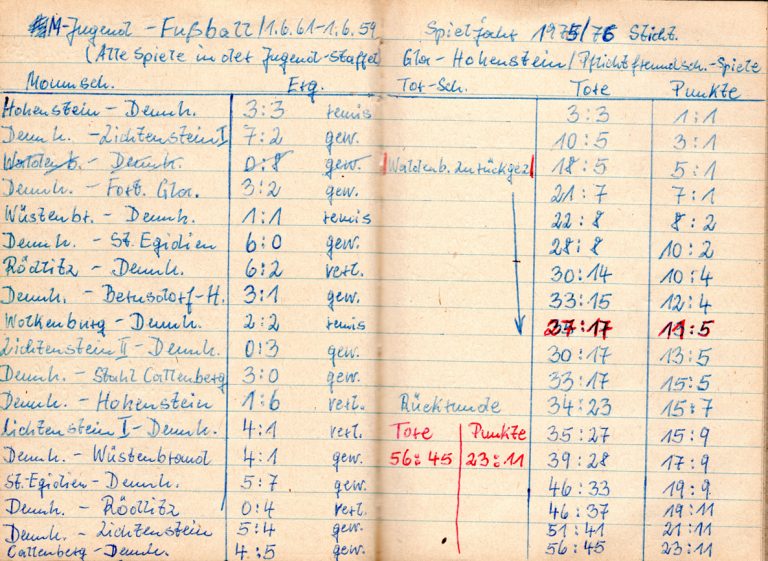 M-Jugend - Fußball / 1.6.61-1.6.59 Spieljahr 1975/76 Sticht.
(Alle Spiele in der Jugend-Staffel Gla-Hohenstein / Pflichtfreundsch.-Spiele
Mannsch. Erg. Tor-Sch. Tore Punkte
Hohenstein - Dennh. 3:3 remis 3:3 1:1
Dennh. - Lichtenstein I 7:2 gew. 10:5 3:1
Waldenb. - Dennh. 0:8 gew. Waldenb. zurückgez. 18:5 5:1
Dennh. - Fort. Gla. 3:2 gew. 21:7 7:1
Wüstenbr. - Dennh. 1:1 remis 22:8 8:2
Dennh. - St. Egidien 6:0 gew. 28:8 10:2
Rödlitz - Dennh. 6:2 verl. 30:14 10:4
Dennh. - Bernsdorf-H. 3:1 gew. 33:15 12:4
Wolkenburg - Dennh. 2:2 remis 27:17 11:5
Lichtenstein II - Dennh. 0:3 gew. 30:17 13:5
Dennh. - Stahl Callenberg 3:0 gew. 33:17 15:5
Dennh. - Hohenstein 1:6 verl. Rückrunde 34:23 15:7
Lichtenstein I - Dennh. 4:1 verl. Tore Punkte 35:27 15:9
Dennh. - Wüstenbrand 4:1 gew. 56:45 23:11 39:28 17:9
St. Egidien - Dennh. 5:7 gew. 46:33 19:9
Dennh. - Rödlitz 0:4 verl. 46:37 19:11
Dennh. - Lichtenstein 5:4 gew. 51:41 21:11
Callenberg - Dennh. 4:5 gew. 56:45 23:11